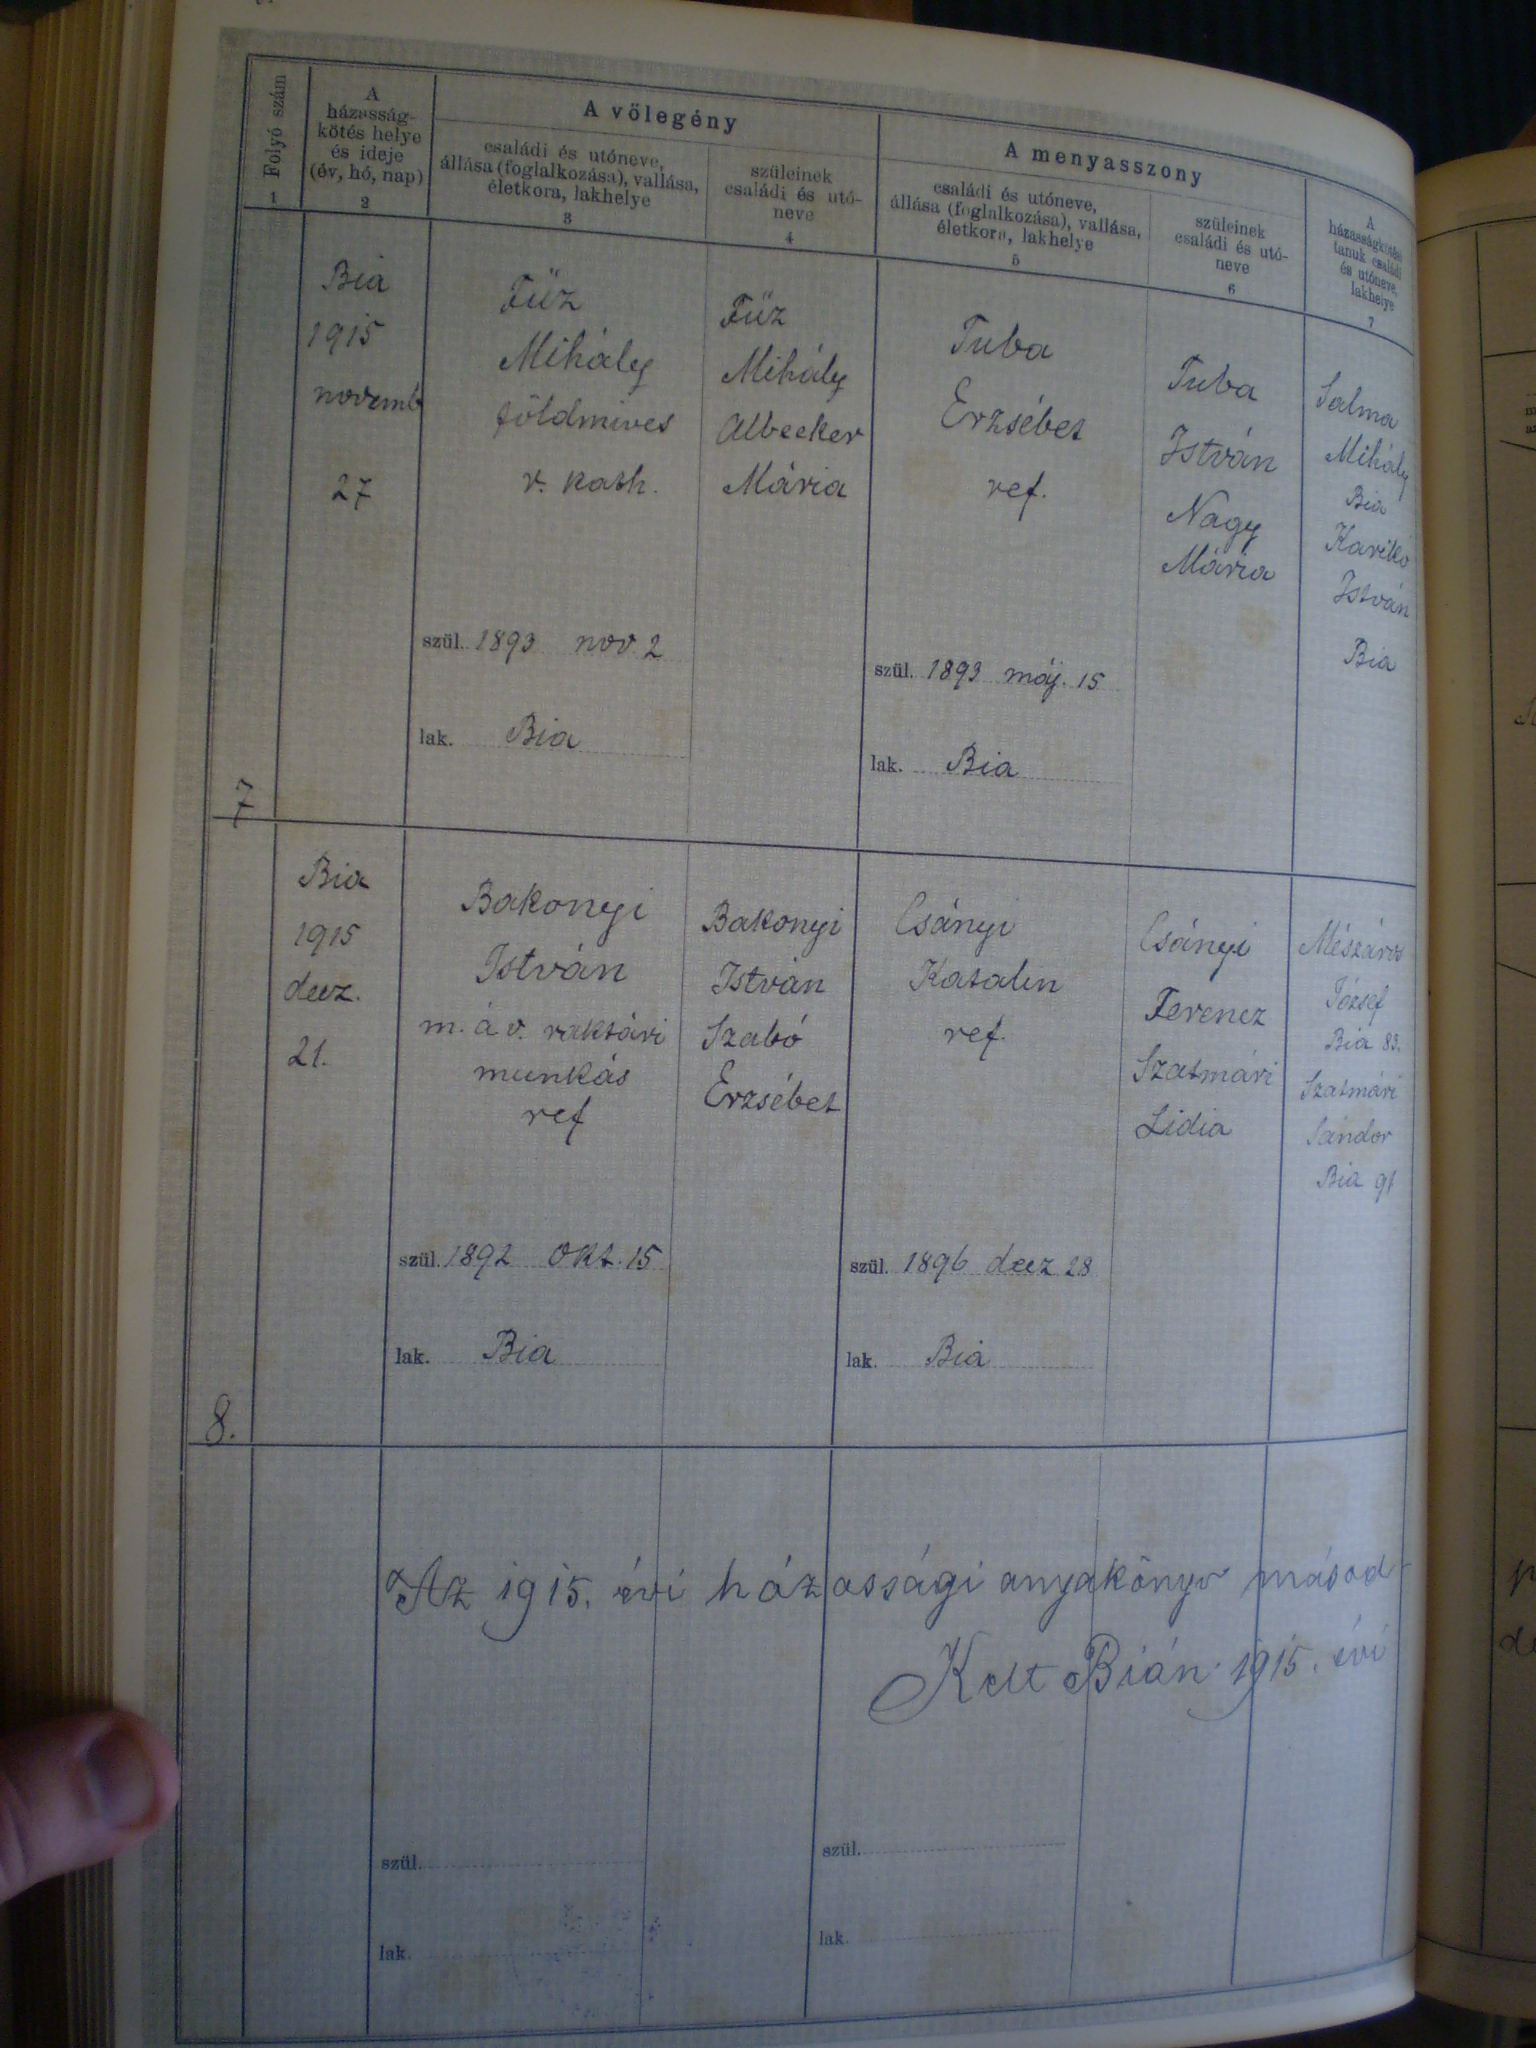 Folyó szám
A
házasság-
kötés helye
és ideje
(év, hó, nap)
A vőlegény
családi és utóneve,
állása (foglalkozása), vallása,
életkora, lakhelye
szüleinek
családi és utó-
neve
A menyasszony
családi és utóneve,
állása (foglalkozása), vallása,
életkora, lakhelye
szüleinek
családi és utó-
neve
A
házasságkötési
tanuk családi
és utóneve,
lakhelye
1
2
3
4
5
6
7
7
Bia
1915
novemb
27
Füz
Mihály
földmives
r. kath.
szül. 1893 nov 2
lak. Bia
Füz
Mihály
Albecker
Mária
Tuba
Erzsébet
ref.
szül. 1893 máj. 15
lak. Bia
Tuba
István
Nagy
Mária
Salma
Mihály
Bia
Karikó
István
Bia
8.
Bia
1915
decz.
21.
Bakonyi
István
m. á v. raktári
munkás
ref
szül. 1892 okt. 15
lak. Bia
Bakonyi
István
Szabó
Erzsébet
Csányi
Katalin
ref.
szül. 1896 decz 28
lak. Bia
Csányi
Ferencz
Szatmári
Lidia
Mészáros
József
Bia 83.
Szatmári
Sándor
Bia 91
Az 1915. évi házassági anyakönyv másod-
Kelt Bián 1915. évi
szül.
lak.
szül.
lak.